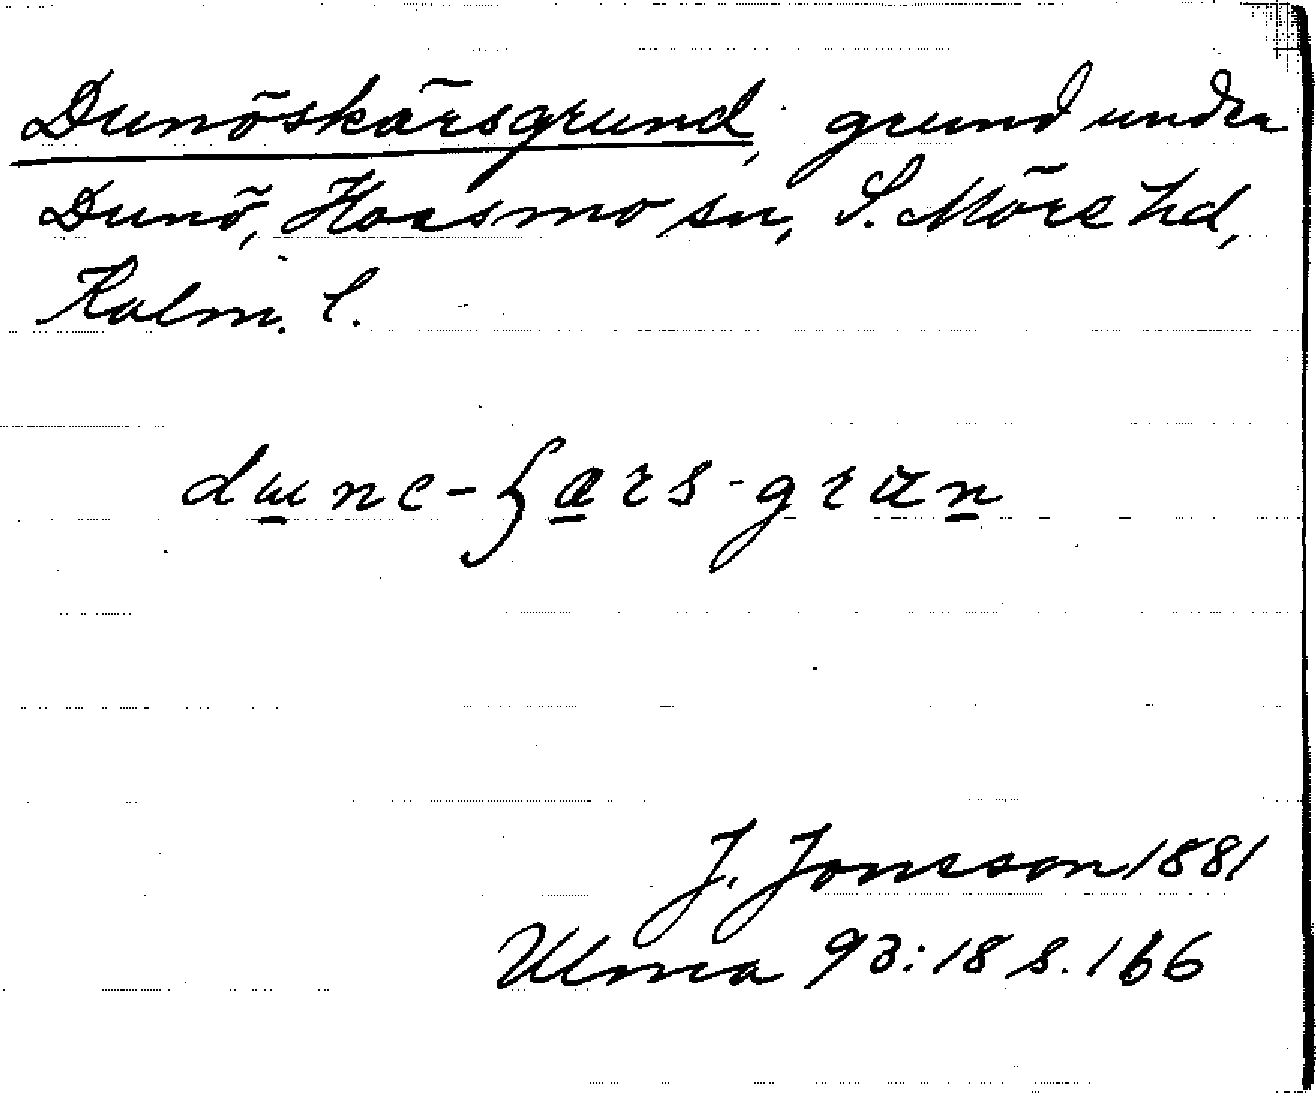 Dunöskärsgrund, grund under
Dunö, Hossmo sn, S. Möre hd,
Kalm. l.
J. Jonsson 1881
Ulma 93:18 s. 166